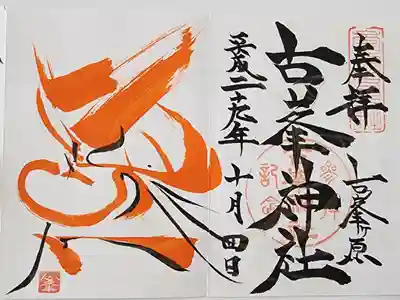 奉拝
古峯ヶ原
古峯神社
参拝記念
平成二十 年十月四日